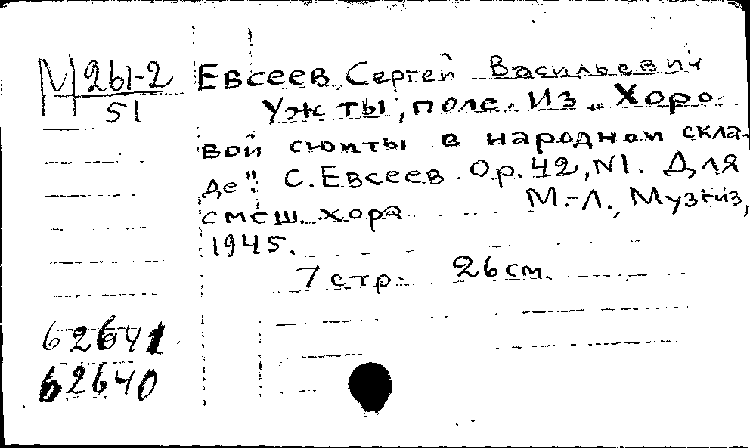 М 261-2
51
Евсеев, Сергей Васильевич
Уж ты, поле. Из „Хоро-
вой сюиты в народном скла-
де". С. Евсеев. Ор. 42, N1. Для
смеш. хора М.-Л., Музгиз,
1945.
7 стр. 26 см.
62641
62640